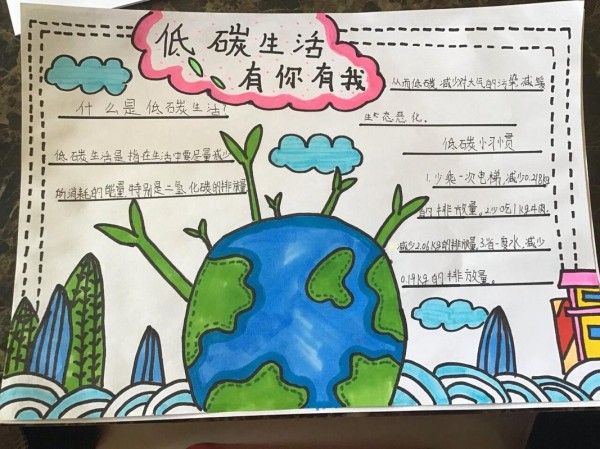 低碳生活
有你有我
什么是低碳生活?
低碳生活是指在生活中要尽量减少
所消耗的能量,特别是二氧化碳的排放量
从而低碳,减少对大气的污染,减缓
生态恶化。
低碳小习惯
1.少乘一次电梯,减少0.218kg
的排放量。2.少吃1kg牛肉,
减少2.06kg的排放量,3.省一度水,减少
0.19kg的排放量。